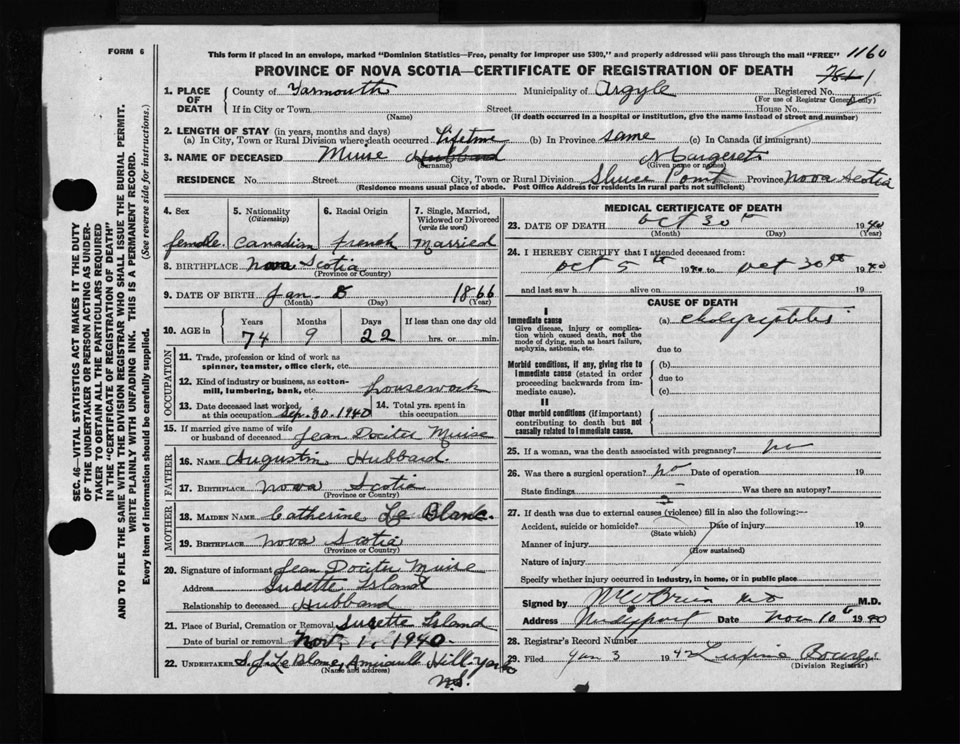 FORM 6
This form if placed in an envelope, marked "Dominion Statistics—Free, penalty for improper use $300," and properly addressed will pass through the mail "FREE"
1160
PROVINCE OF NOVA SCOTIA—CERTIFICATE OF REGISTRATION OF DEATH
1. PLACE OF DEATH
County of Yarmouth
(Name)
Municipality of Argyle
Registered No.
(For use of Registrar General only)
If in City or Town
Street
House No.
(If death occurred in a hospital or institution, give the name instead of street and number)
2. LENGTH OF STAY (in years, months and days)
(a) In City, Town or Rural Division where death occurred Lifetime (b) In Province same (c) In Canada (if immigrant)
3. NAME OF DECEASED Muise Hubbard Margeret
(Surname) (Given name or names)
RESIDENCE No. Street City, Town or Rural Division Sluice Point Province Nova Scotia
(Residence means usual place of abode. Post Office Address for residents in rural parts not sufficient)
4. Sex
female
5. Nationality
(Citizenship)
Canadian
6. Racial Origin
French
7. Single, Married, Widowed or Divorced
(write the word)
Married
8. BIRTHPLACE Nova Scotia
(Province or Country)
9. DATE OF BIRTH Jan. 8 1866
(Month) (Day) (Year)
10. AGE in
Years Months Days If less than one day old
74 9 22 hrs. or min.
OCCUPATION
11. Trade, profession or kind of work as spinner, teamster, office clerk, etc.
12. Kind of industry or business, as cotton-mill, lumbering, bank, etc. housework
13. Date deceased last worked at this occupation Sep. 30. 1940
14. Total yrs. spent in this occupation
15. If married give name of wife or husband of deceased Jean Dociter Muise
FATHER
16. NAME Augustin Hubbard.
17. BIRTHPLACE Nova Scotia
(Province or Country)
MOTHER
18. MAIDEN NAME Catherine Le Blanc.
19. BIRTHPLACE Nova Scotia
(Province or Country)
20. Signature of informant Jean Dociter Muise
Address Surette Island
Relationship to deceased Husband
21. Place of Burial, Cremation or Removal Surette Island
Date of burial or removal Nov. 1, 1940.
22. UNDERTAKER S. J. Le Blanc, Amirault Hill. Yarm
(Name and address)
N.S.
MEDICAL CERTIFICATE OF DEATH
23. DATE OF DEATH Oct 30th 1940
(Month) (Day) (Year)
24. I HEREBY CERTIFY that I attended deceased from:
Oct 5th 1940 to Oct 30th 1940
and last saw h alive on 19
CAUSE OF DEATH
I
Immediate cause
Give disease, injury or complication which caused death, not the mode of dying, such as heart failure, asphyxia, asthenia, etc.
(a)
due to
Morbid conditions, if any, giving rise to immediate cause (stated in order proceeding backwards from immediate cause).
(b)
due to
(c)
II
Other morbid conditions (if important) contributing to death but not causally related to immediate cause.
25. If a woman, was the death associated with pregnancy? no
26. Was there a surgical operation? no Date of operation 19
State findings Was there an autopsy?
27. If death was due to external causes (violence) fill in also the following:—
Accident, suicide or homicide? Date of injury 19
(State which)
Manner of injury
(How sustained)
Nature of injury
Specify whether injury occurred in industry, in home, or in public place
Signed by M.D.
Address Date Nov 10th 1940
28. Registrar's Record Number
29. Filed Jan 3 1942
(Division Registrar)
SEC. 46—VITAL STATISTICS ACT MAKES IT THE DUTY
OF THE UNDERTAKER OR PERSON ACTING AS UNDER-
TAKER TO OBTAIN ALL THE PARTICULARS REQUIRED
IN THE "CERTIFICATE OF REGISTRATION OF DEATH"
AND TO FILE THE SAME WITH THE DIVISION REGISTRAR WHO SHALL ISSUE THE BURIAL PERMIT.
WRITE PLAINLY WITH UNFADING INK. THIS IS A PERMANENT RECORD.
Every item of information should be carefully supplied. (See reverse side for instructions.)